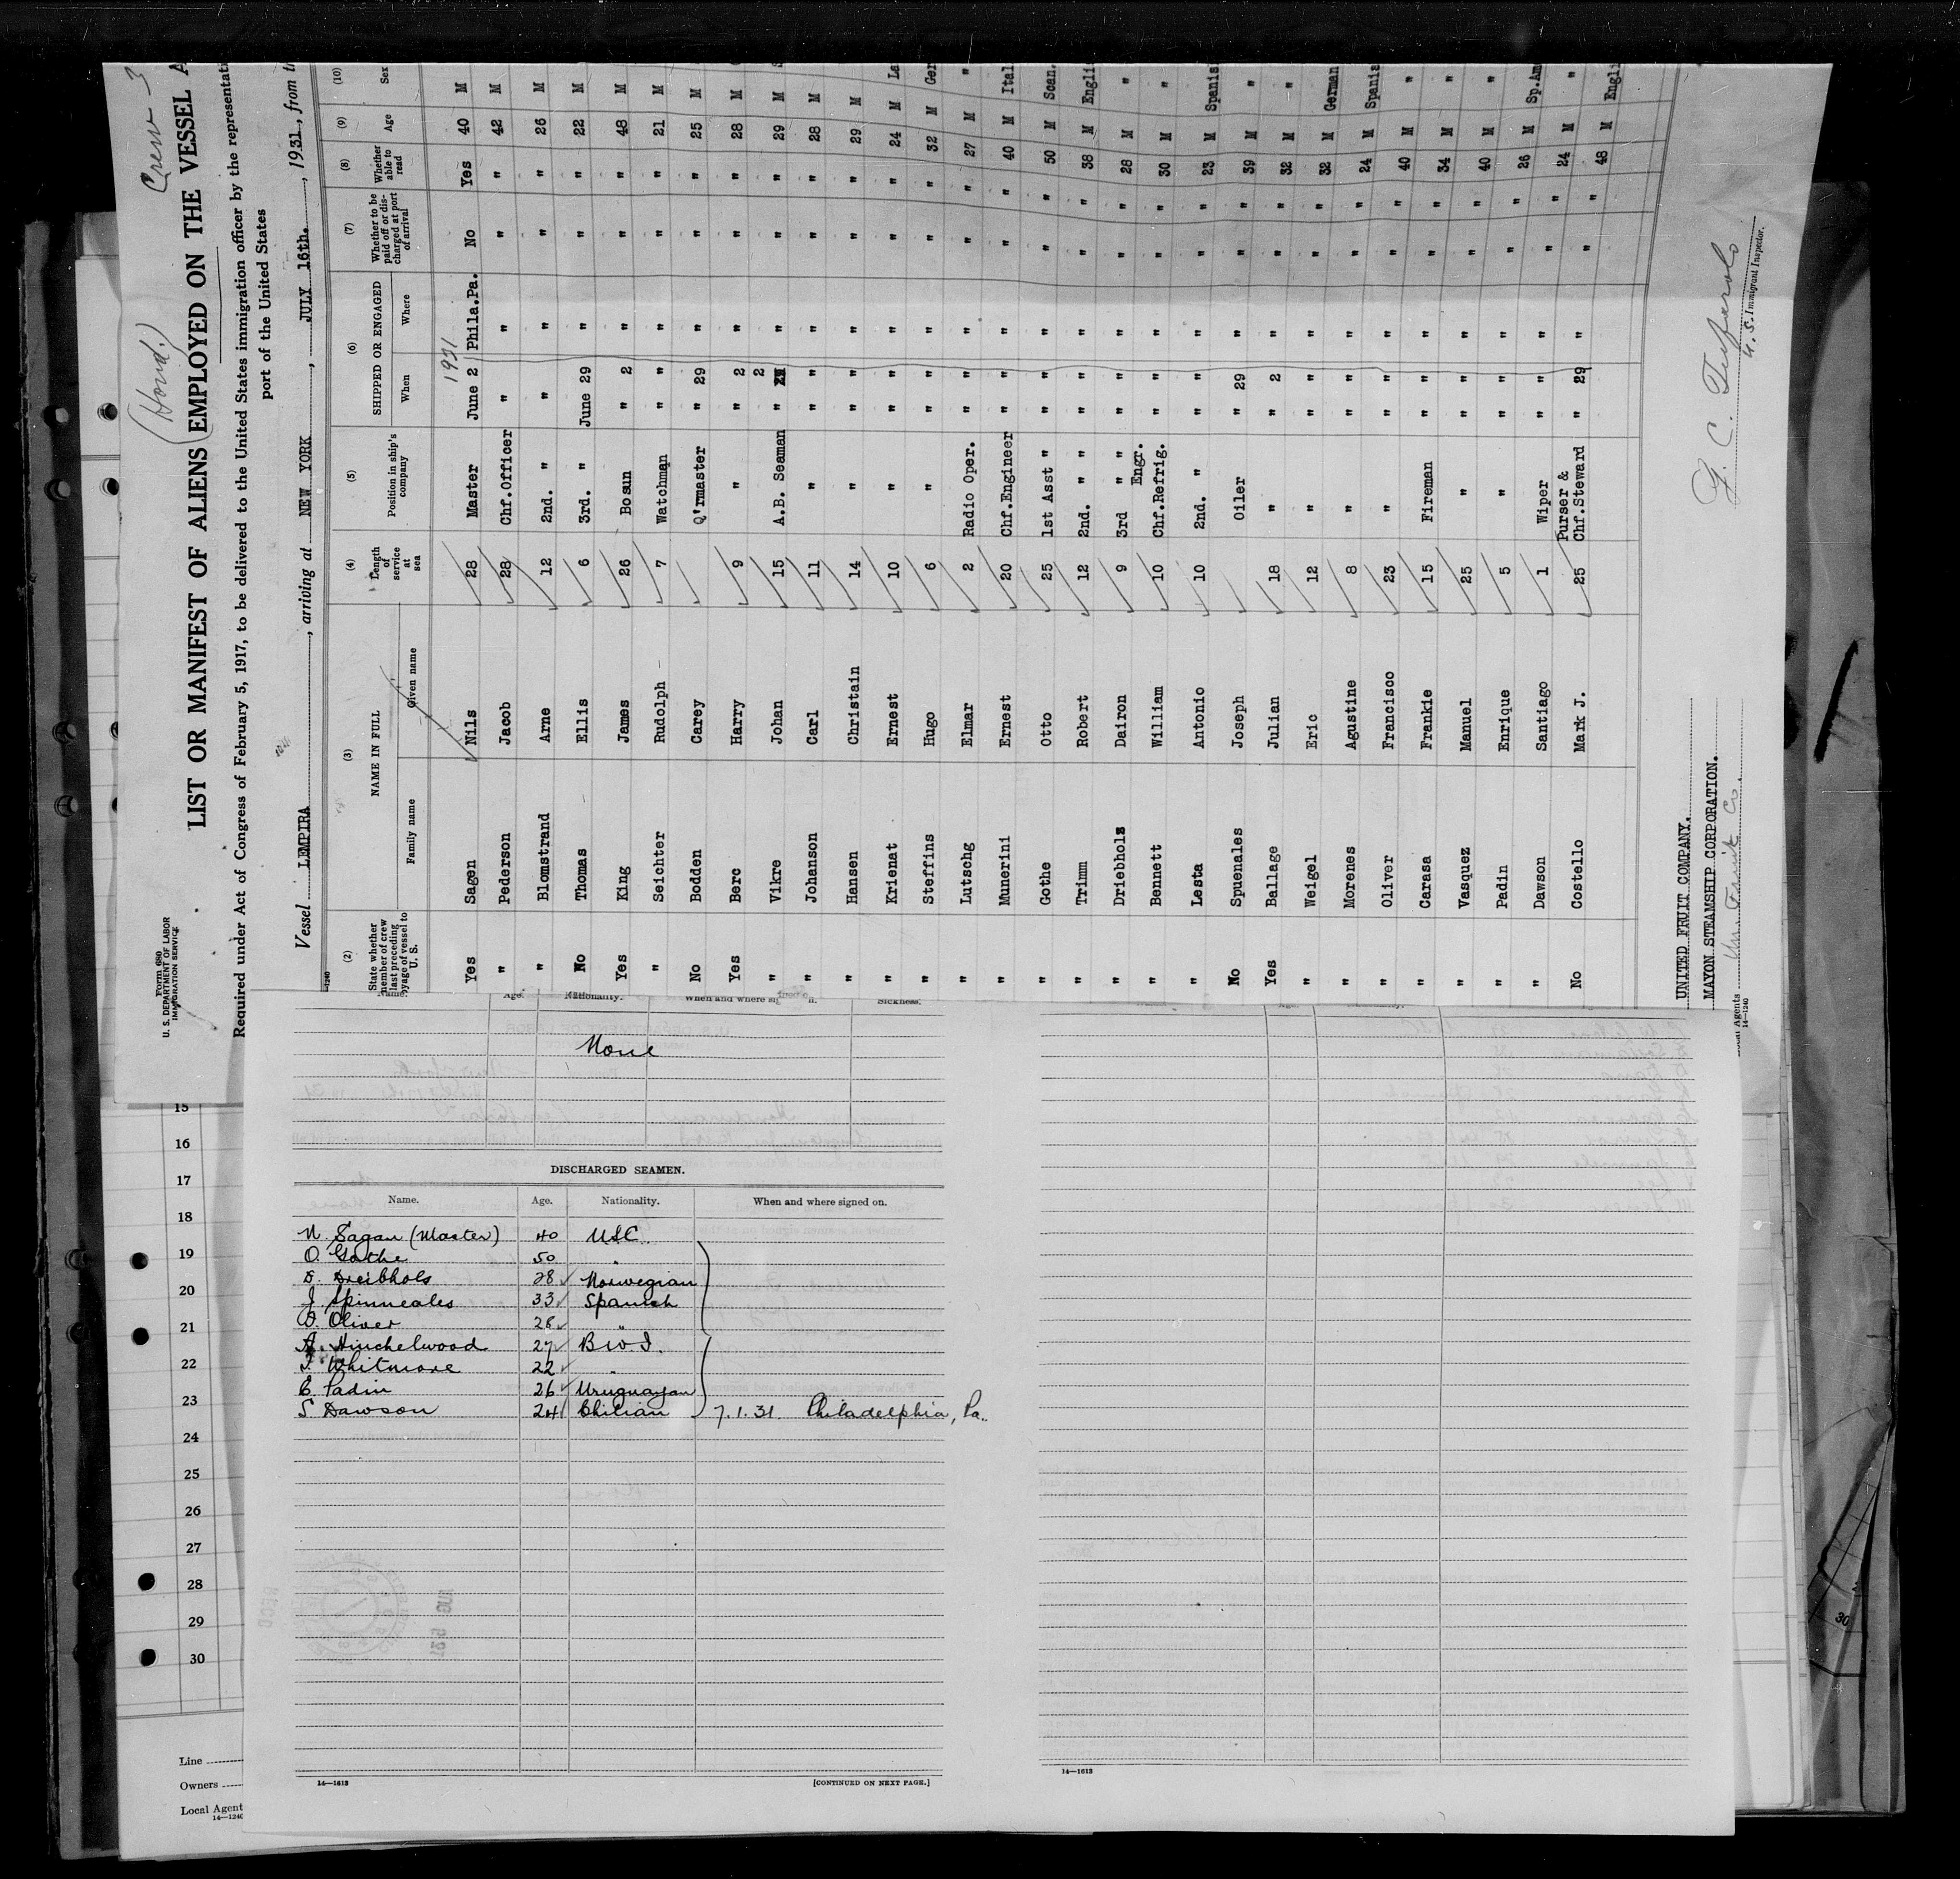 Crew - 3
(Hond.)
Form 680
U. S. DEPARTMENT OF LABOR
IMMIGRATION SERVICE
LIST OR MANIFEST OF ALIENS EMPLOYED ON THE VESSEL A
Required under Act of Congress of February 5, 1917, to be delivered to the United States immigration officer by the representati
port of the United States
Vessel LEMPIRA, arriving at NEW YORK, JULY 16th., 1931, from
(2) (3) (4) (5) (6) (7) (8) (9) (10)
State whether member of crew last preceding voyage of vessel to U. S. NAME IN FULL Length of service at sea Position in ship's company SHIPPED OR ENGAGED Whether to be paid off or discharged at port of arrival Whether able to read Age Sex
Family name Given name When Where
1931
Yes Sagen Nils 28 Master June 2 Phila.Pa. No Yes 40 M
" Pederson Jacob 28 Chf.Officer " " " " 42 M
" Blomstrand Arne 12 2nd. " " " " " 26 M
No Thomas Ellis 6 3rd. " June 29 " " " 22 M
Yes King James 26 Bosun " 2 " " " 48 M
" Seichter Rudolph 7 Watchman " " " " " 21 M
No Bodden Carey Q'rmaster " 29 " " " 25 M
Yes Berc Harry 9 " " 2 " " " 28 M
" Vikre Johan 15 A.B. Seaman " 2 " " " 29 M
" Johanson Carl 11 " " " " " " 28 M
" Hansen Christain 14 " " " " " " 29 M
" Krienat Ernest 10 " " " " " " 24 M La
" Steffins Hugo 6 " " " " " " 32 M Ger
" Lutschg Elmar 2 Radio Oper. " " " " " 27 M "
" Munerini Ernest 20 Chf.Engineer " " " " " 40 M Ital
" Gothe Otto 25 1st Asst " " " " " " 50 M Scan.
" Trimm Robert 12 2nd. " " " " " " " 38 M Engli
" Driebhols Dairon 9 3rd " " " " " " " 28 M "
" Bennett William 10 Chf.Refrig. Engr. " " " " " 30 M "
" Lesta Antonio 10 2nd. " " " " " " 23 M Spanis
No Spuenales Joseph Oiler " 29 " " " 39 M "
Yes Ballage Julian 18 " " 2 " " " 32 M "
" Weigel Eric 12 " " " " " " 32 M German
" Morenes Agustine 8 " " " " " " 24 M Spanis
" Oliver Francisco 23 " " " " " " 40 M "
" Carasa Frankie 15 Fireman " " " " " 34 M "
" Vasquez Manuel 25 " " " " " " 40 M "
" Padin Enrique 5 " " " " " " 26 M Sp.Am
" Dawson Santiago 1 Wiper " " " " " 24 M "
No Costello Mark J. 25 Purser & Chf.Steward " 29 " " " 48 M Engli
UNITED FRUIT COMPANY.
MAYON STEAMSHIP CORPORATION.
Local Agents Un. Fruit Co.
14—1240
U. S. Immigrant Inspector.
Age. Nationality. When and where Sickness.
None
DISCHARGED SEAMEN.
Name. Age. Nationality. When and where signed on.
N. Sagan (Master) 40 USC.
O. Gothe 50 "
D. Dreibhols 28 Norwegian
J. Spinneales 33 Spanish
O. Oliver 28 "
A. Hinchelwood 27 B.W.I.
T. Whitmore 22 "
E. Padin 26 Uruguayan
S. Dawson 24 Chilian 7.1.31. Philadelphia, Pa.
14—1613
[CONTINUED ON NEXT PAGE.]
14—1613
15
16
17
18
19
20
21
22
23
24
25
26
27
28
29
30
Line
Owners
Local Agent
14—1240
30